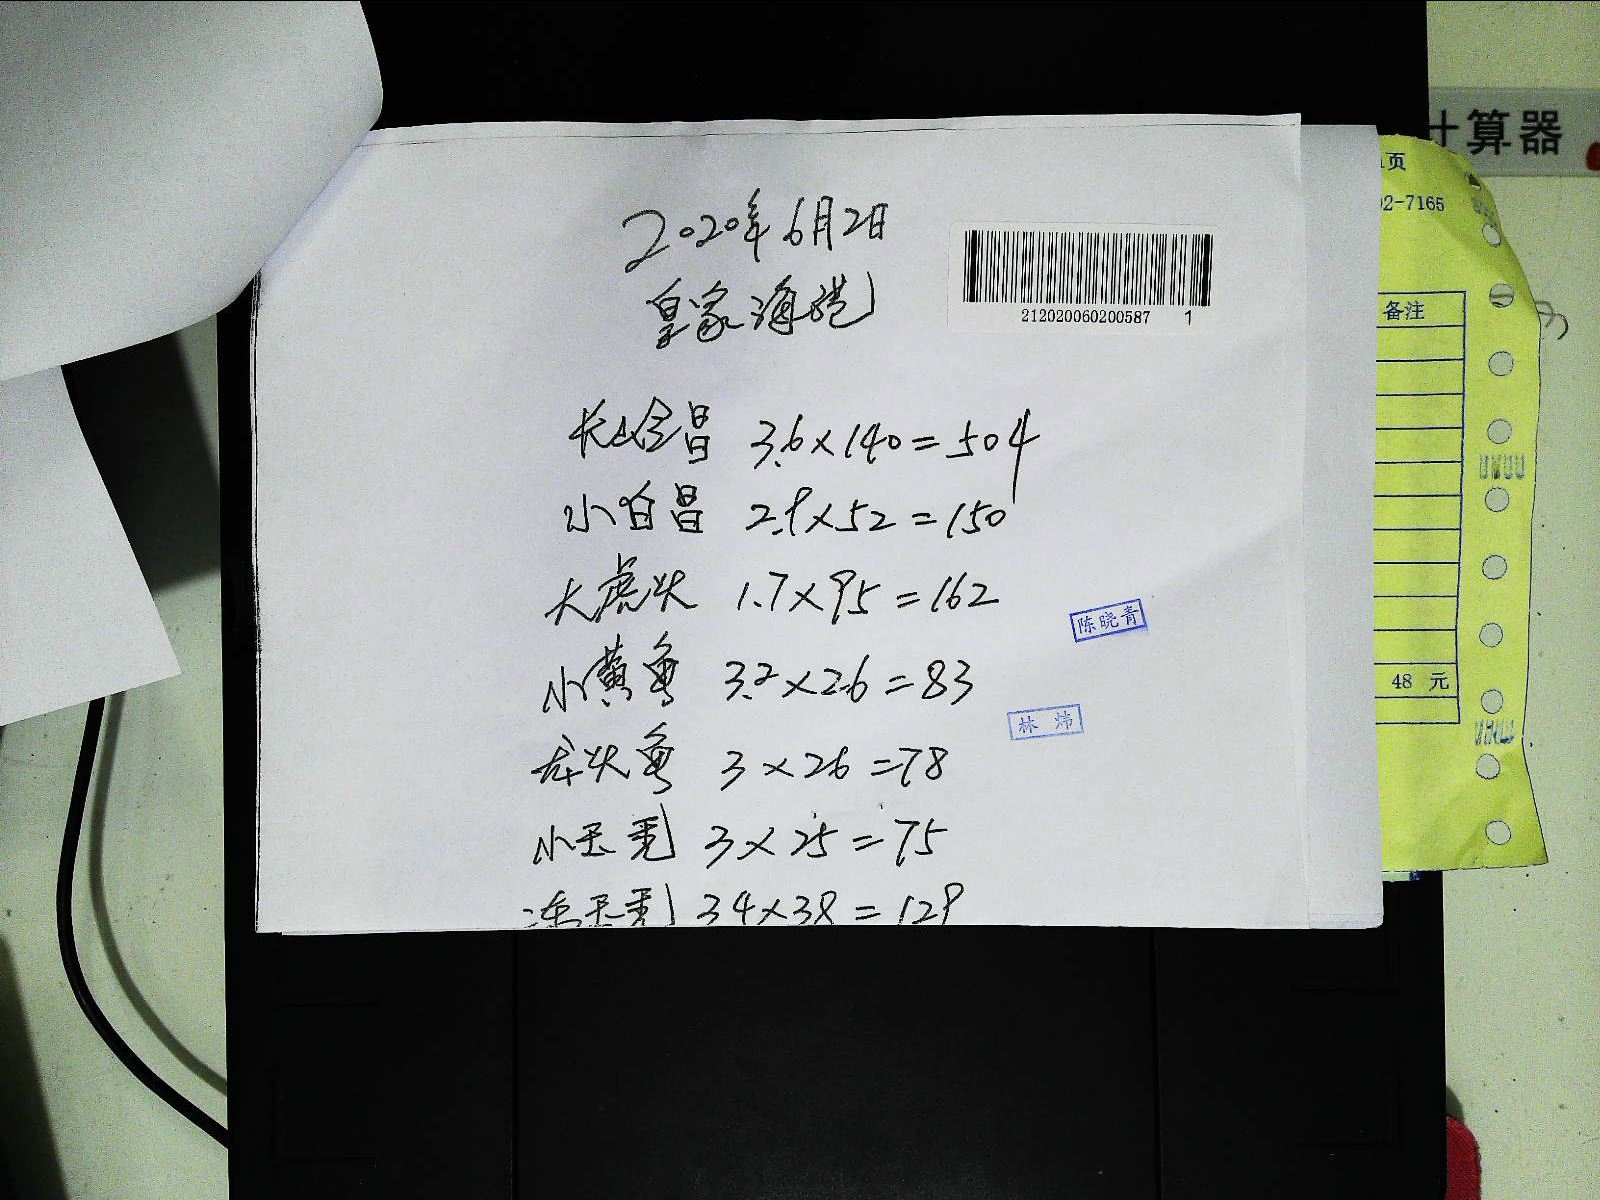 2020年6月2日
皇家海港
212020060200587 1
3.6×140=504
小白昌 2.9×52=150
大虎头 1.7×95=162
小黄鱼 3.2×26=83
龙头鱼 3×26=78
3×25=75
34×38=129
陈晓青
林炜
计算器
页
02-7165
备注
48 元